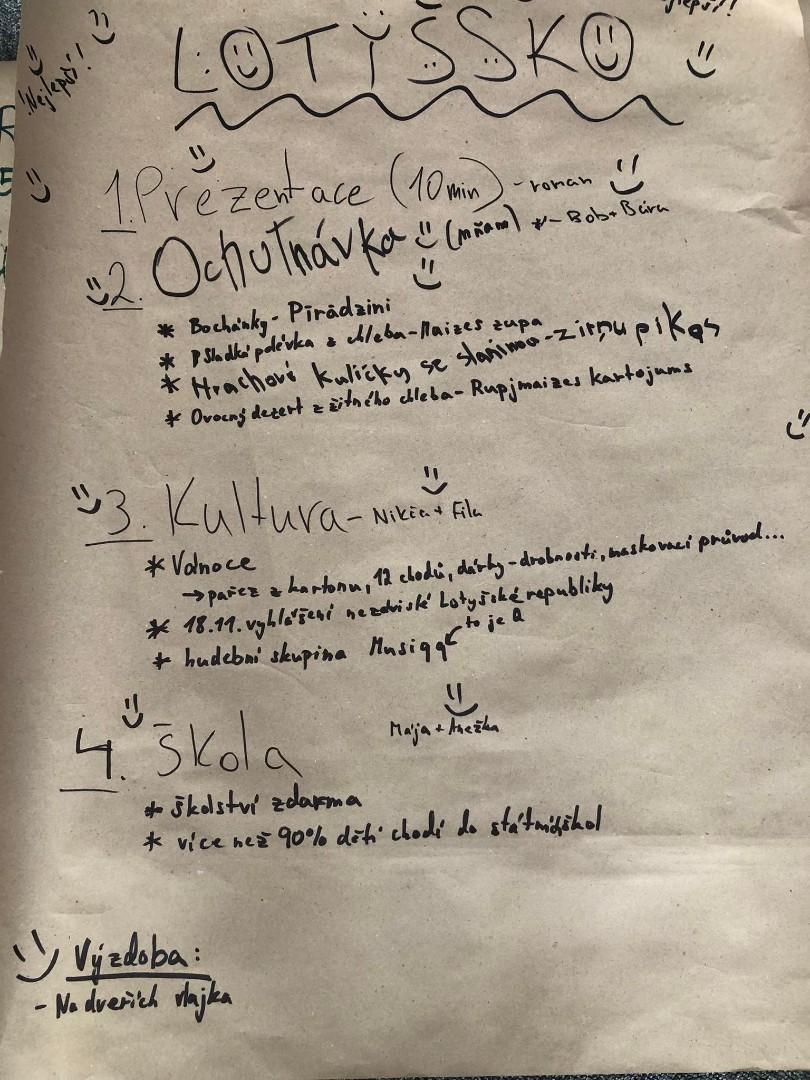 !Nejlepší!
LOTYŠSKO
1. Prezentace (10 min) - roman
2. Ochutnávka (mňam) *- Bob + Bára
* Bochánky - Pīrādzini
* Sladká polévka z chleba - Maizes zupa
* Hrachové kuličky se slaninou - zirņu pikas
* Ovocný dezert z žitného chleba - Rupjmaizes kartojums
3. Kultura - Nikča + Fila
* Vánoce
→ pařez z kartonu, 12 chodů, dárky - drobnosti, maskovací průvod...
* 18.11. vyhlášení nezávislé Lotyšské republiky
to je Q
* hudební skupina Musiqq
Mája + Anežka
4. Škola
* školství zdarma
* více než 90% dětí chodí do státních škol
Výzdoba:
- Na dveřích vlajka